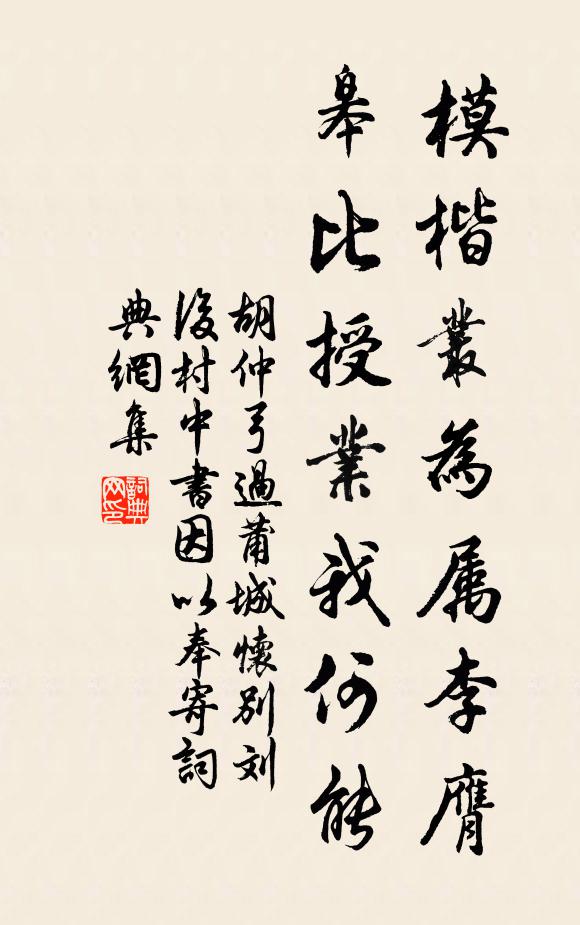 模楷叢為属李膺
皋比授業我何能
胡仲弓過莆城懷別刘
後村中書因以奉寄詞
典網集
詞典网印